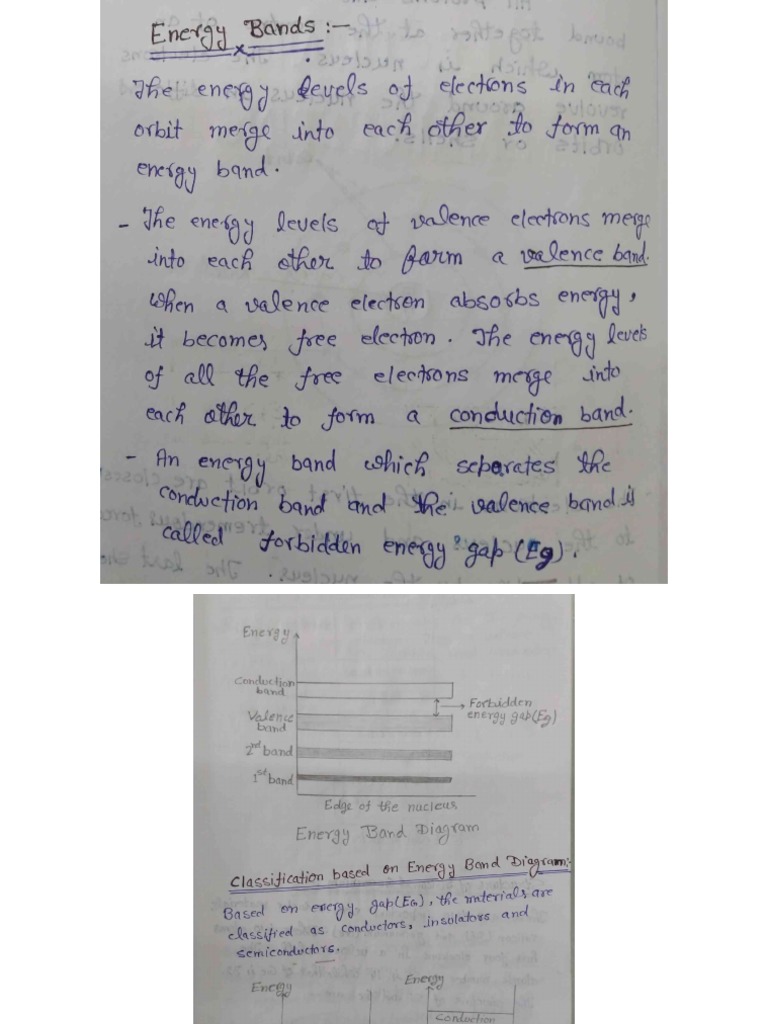 Energy Bands :-
The energy levels of electrons in each
orbit merge into each other to form an
energy band.
- The energy levels of valence electrons merge
into each other to form a valence band.
When a valence electron absorbs energy,
it becomes free electron. The energy levels
of all the free electrons merge into
each other to form a conduction band.
- An energy band which separates the
conduction band and the valence band is
called forbidden energy gap (Eg).
Energy
Conduction
band
Forbidden
energy gap(Eg)
Valence
band
2nd band
1st band
Edge of the nucleus
Energy Band Diagram
Classification based on Energy Band Diagram:-
Based on energy gap(EG), the materials are
classified as conductors, insolators and
semiconductors.
Energy
Energy
Conduction